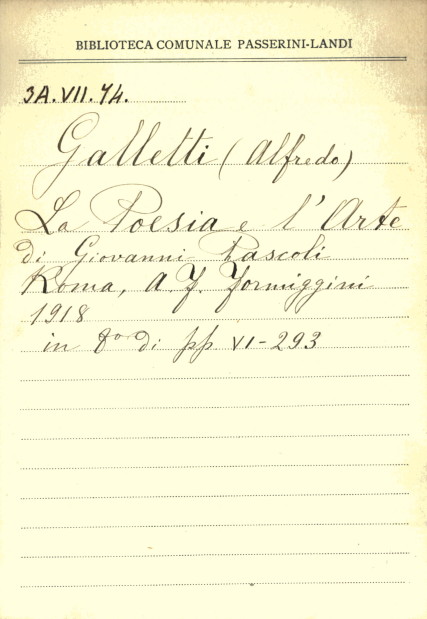 BIBLIOTECA COMUNALE PASSERINI-LANDI
3A.VII.74.
Galletti (Alfredo)
La Poesia e l'Arte
di Giovanni Pascoli
Roma, A. F. Formiggini
1918
in 8º di pp VI-293